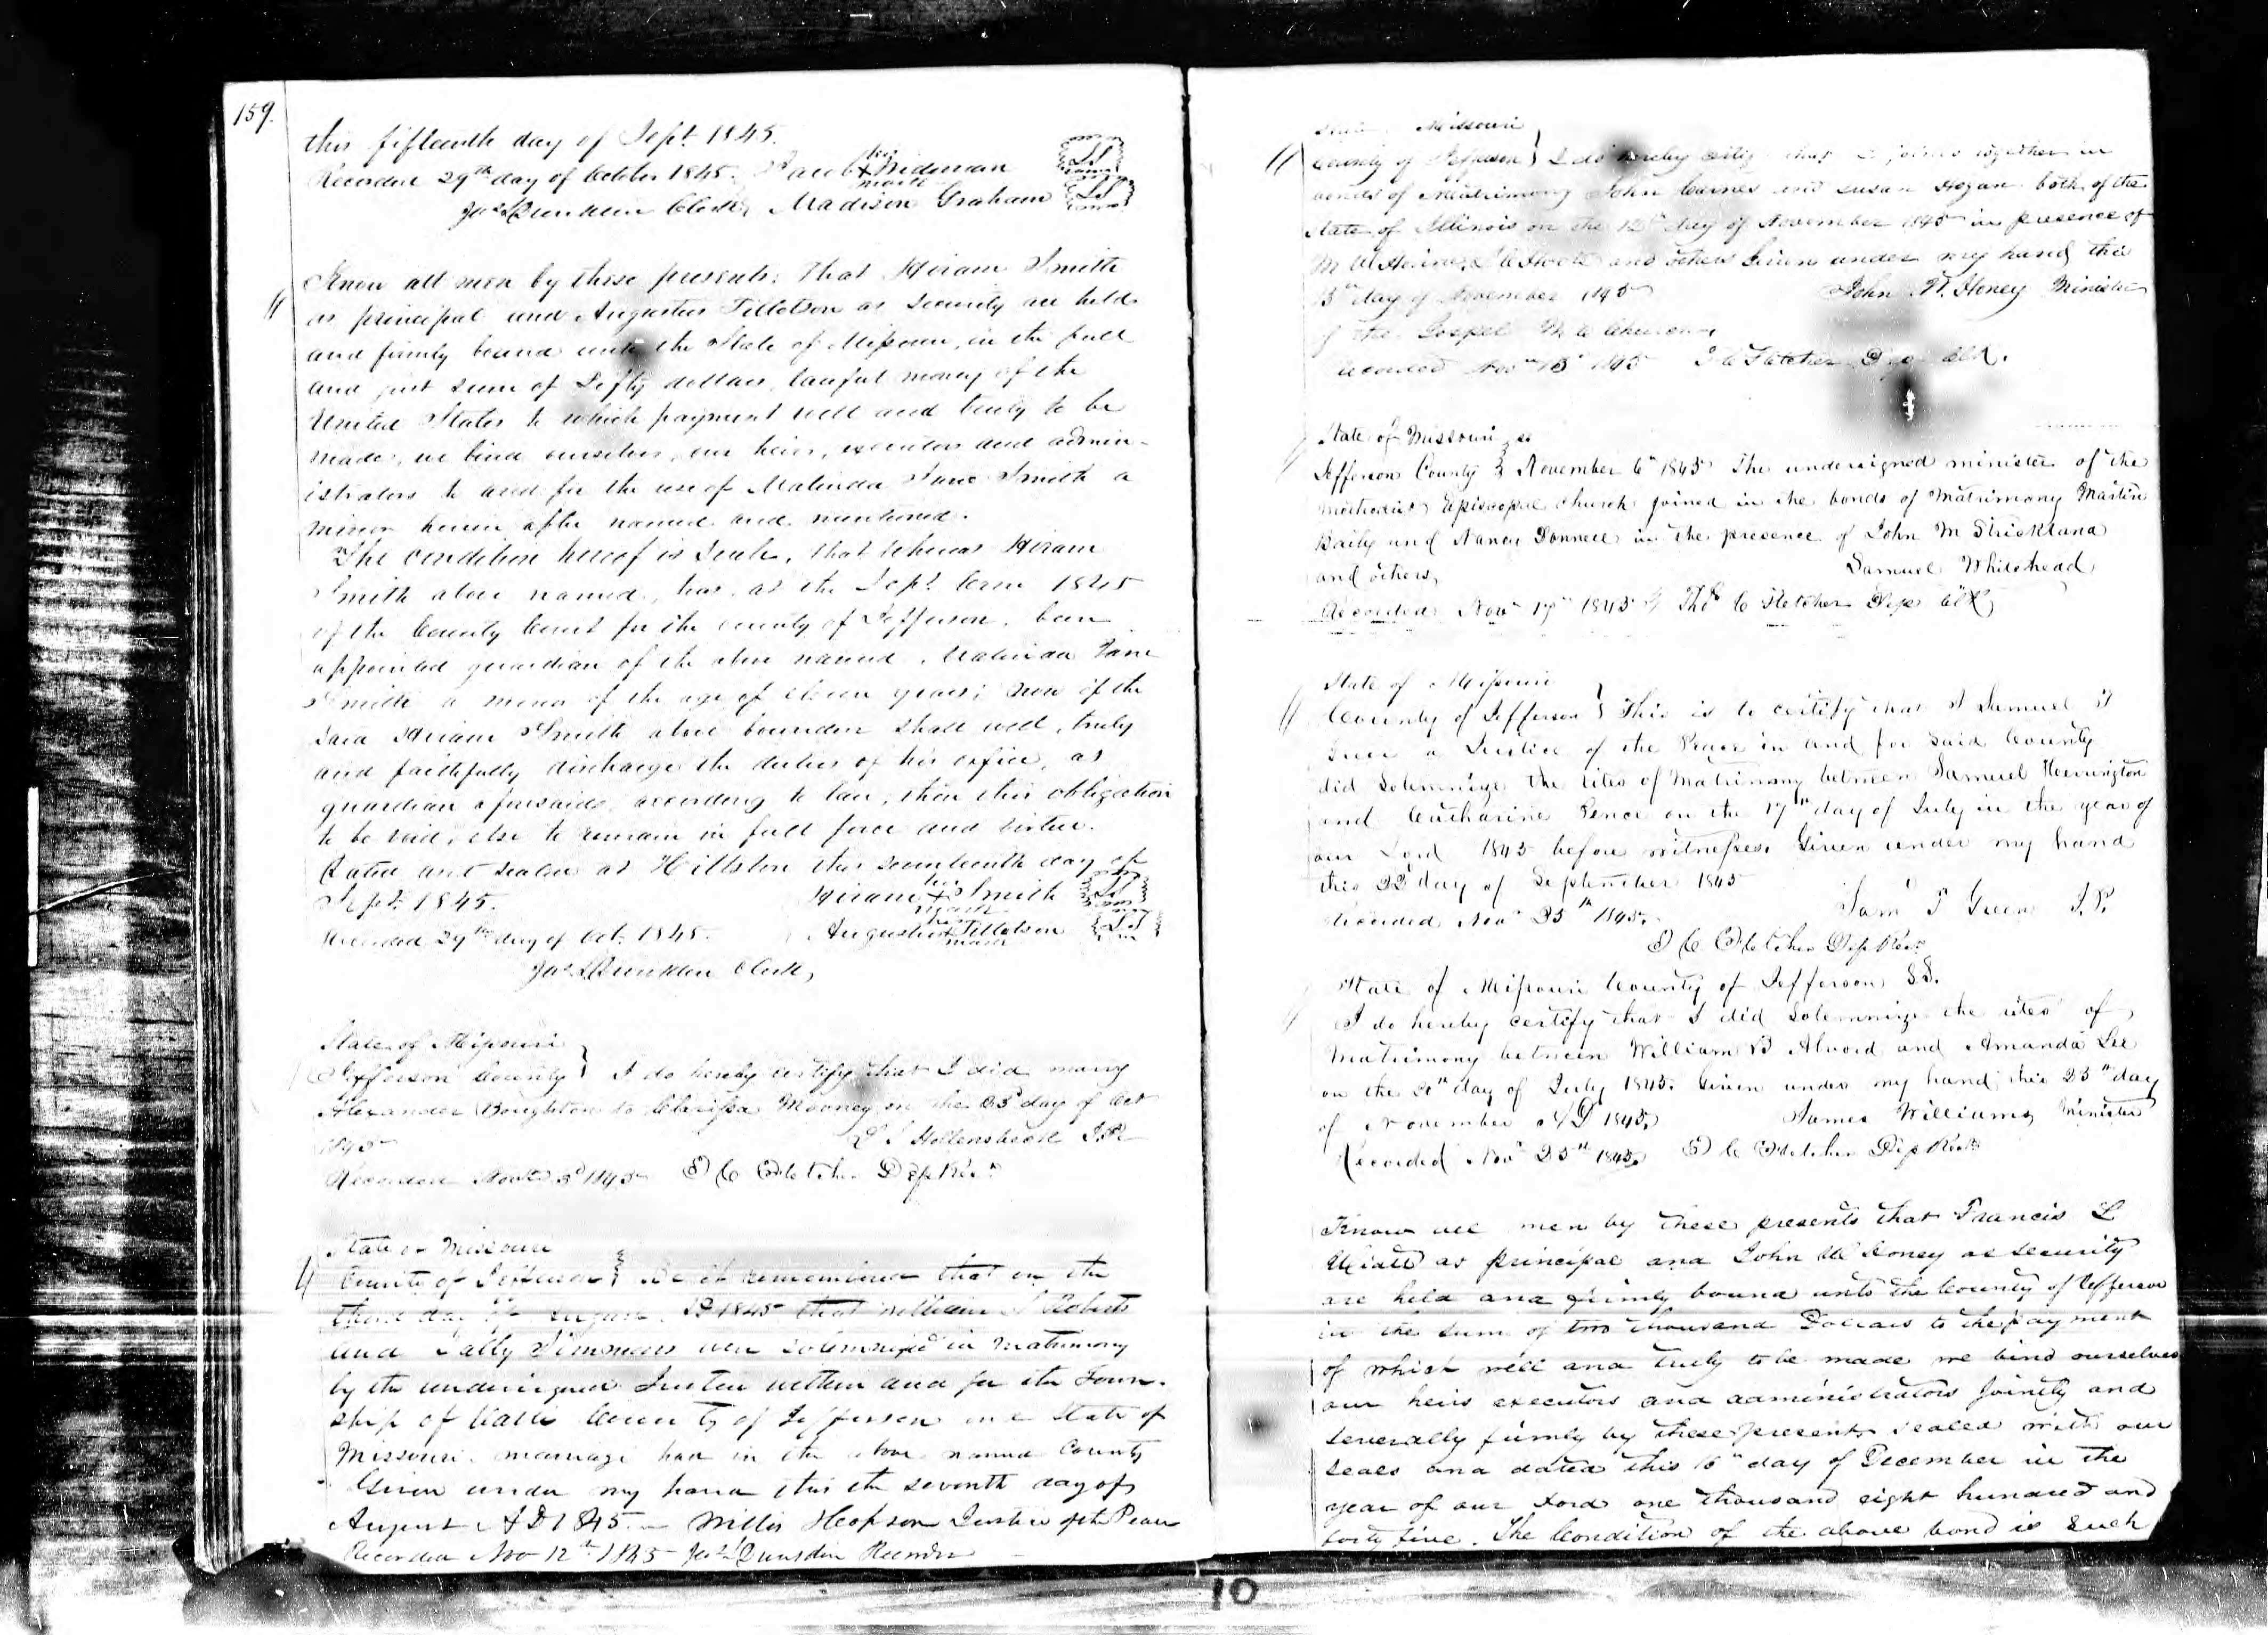 159.
this fifteenth day of Sept. 1845.
Recorded 29th day of October 1845. Jacob his X mark Wideman LS
Jas. S. Clerk, Madison Graham LS
Know all men by these presents; that Hiram Smith
as principal and Augustus Tilletson as security are held
and firmly bound unto the State of Missouri, in the full
and just sum of Fifty dollars, lawful money of the
United States to which payment well and truly to be
made, we bind ourselves, our heirs, executors and admin-
istrators to and for the use of Malinda Jane Smith a
minor herein after named and mentioned.
The condition hereof is Such, that whereas Hiram
Smith above named, has, at the Sept. term 1845
of the County Court for the county of Jefferson, been
appointed guardian of the above named, Malinda Jane
Smith a minor of the age of eleven years; now if the
said Hiram Smith above bounden shall well, truly
and faithfully discharge the duties of his office, as
guardian aforesaid, according to law, then this obligation
to be void, else to remain in full force and virtue.
Dated and sealed at Hillsboro this seventeenth day of
Sept. 1845. Hiram his X mark Smith LS
Recorded 29th day of Oct. 1845. Augustus his X mark Tilletson LS
Jas. S. Clerk,
State of Missouri
Jefferson County } I do hereby certify that I did marry
Alexander Boughton to Clarissa Mooney on the 23d day of Oct
1845 Hollensbeck J.P.
Recorded Nov 3d 1845 T C Fletcher Dep Recr
State of Missouri
County of Jefferson } Be it remembered that on the
third day of August AD 1845 that William S Roberts
and Sally Simmons were solemnized in matrimony
by the undersigned Justice within and for the Town-
ship of County of Jefferson and State of
Missouri. marriage had in the above named County
Given under my hand this the seventh day of
August AD 1845. Willis Hopson Justice of the Peace
Recorded Nov 12th 1845 Jas. S. Recorder
State Missouri
County of Jefferson } I do hereby certify that I joined together in
bonds of Matrimony John Carnes and Susan Hogan both of the
State of Illinois on the 12th day of November 1845 in presence of
and others Given under my hand this
13th day of November 1845 John W. Honey Minister
of the Gospel M. E. Church
Recorded Nov 13 1845 T C Fletcher Dep Clk.
State of Missouri ss
Jefferson County } November 6th 1845 The undersigned minister of the
Methodist Episcopal Church joined in the bonds of Matrimony Martin
Baily and Nancy Donnell in the presence of John M Strickland
and others, Samuel Whitehead
Recorded Nov 17th 1845 Thos C Fletcher Dep Clk
State of Missouri
County of Jefferson } This is to certify that I Samuel T
Green a Justice of the Peace in and for said County
did Solemnize the rites of Matrimony between Samuel Herrington
and Catharine Pence on the 17th day of July in the year of
our Lord 1845 before witnesses. Given under my hand
this 22d day of September 1845 Sam T Green J.P.
Recorded Nov 25th 1845.
T C Fletcher Dep Recr
State of Missouri County of Jefferson SS.
I do hereby certify that I did Solemnize the rites of
Matrimony between William B Alvord and Amanda Lee
on the day of July 1845. Given under my hand this 25th day
of November AD 1845. James Williams Minister
Recorded Nov 25th 1845. T C Fletcher Dep Recr
Know all men by these presents that Francis L
as principal and John W Honey as security
are held and firmly bound unto the County of Jefferson
in the sum of two thousand Dollars to the payment
of which well and truly to be made we bind ourselves
our heirs executors and administrators Jointly and
severally firmly by these presents sealed with our
seals and dated this 6th day of December in the
year of our Lord one thousand eight hundred and
forty five. The Condition of the above bond is such
10